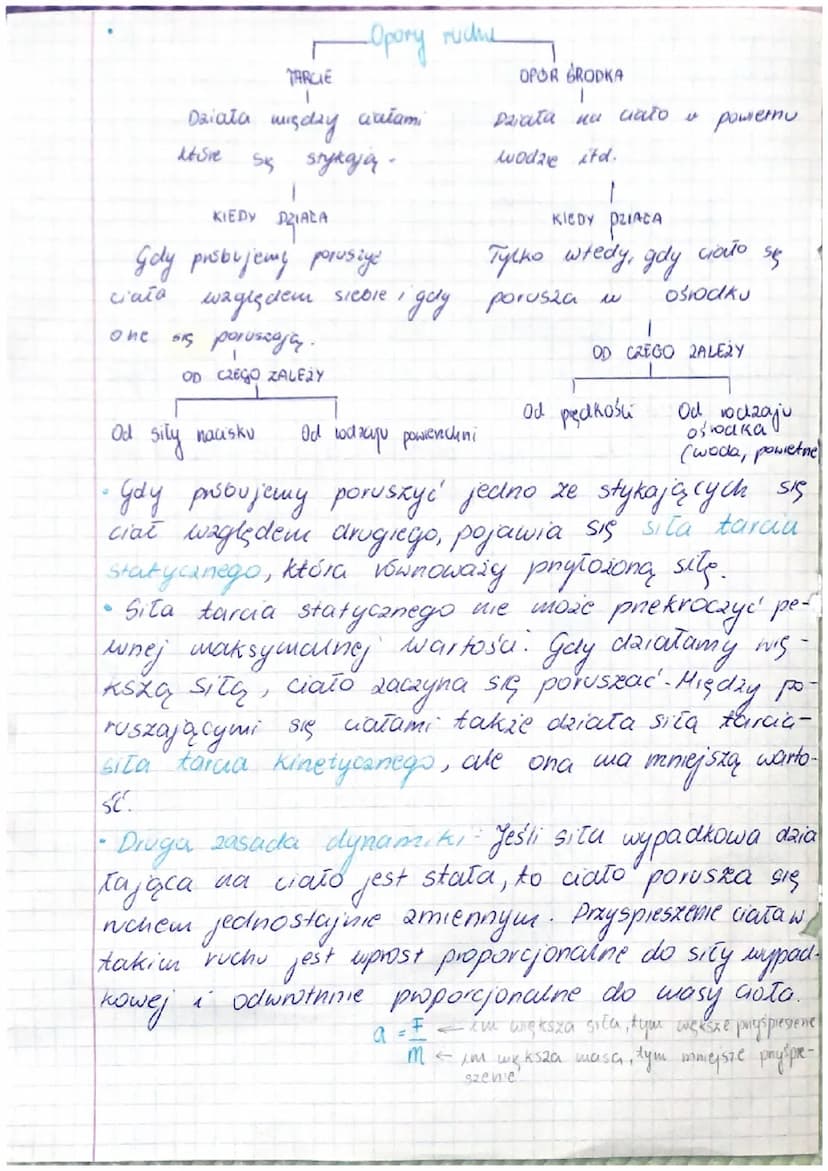 Opory ruchu
TARCIE
OPÓR OŚRODKA
Działa między ciałami
które się stykają.
Działa na ciało w powietrzu
wodzie itd.
KIEDY DZIAŁA
Gdy próbujemy poruszyć
ciała względem siebie i gdy
one się poruszają.
KIEDY DZIAŁA
Tylko wtedy, gdy ciało się
porusza w ośrodku
OD CZEGO ZALEŻY
Od siły nacisku
Od rodzaju powierzchni
OD CZEGO ZALEŻY
Od prędkości
Od rodzaju
ośrodka
(woda, powietrze)
• Gdy próbujemy poruszyć jedno ze stykających się
ciał względem drugiego, pojawia się siła tarcia
statycznego, która równoważy przyłożoną siłę.
• Siła tarcia statycznego nie może przekroczyć pe-
wnej maksymalnej wartości. Gdy działamy wię-
kszą siłą, ciało zaczyna się poruszać. Między po-
ruszającymi się ciałami także działa siła tarcia-
siła tarcia kinetycznego, ale ona ma mniejszą warto-
ść.
• Druga zasada dynamiki: Jeśli siła wypadkowa dzia
łająca na ciało jest stała, to ciało porusza się
ruchem jednostajnie zmiennym. Przyspieszenie ciała w
takim ruchu jest wprost proporcjonalne do siły wypad-
kowej i odwrotnie proporcjonalne do masy ciała.
a = F/m
← im większa siła, tym większe przyspieszenie
← im większa masa, tym mniejsze przyspie-
szenie